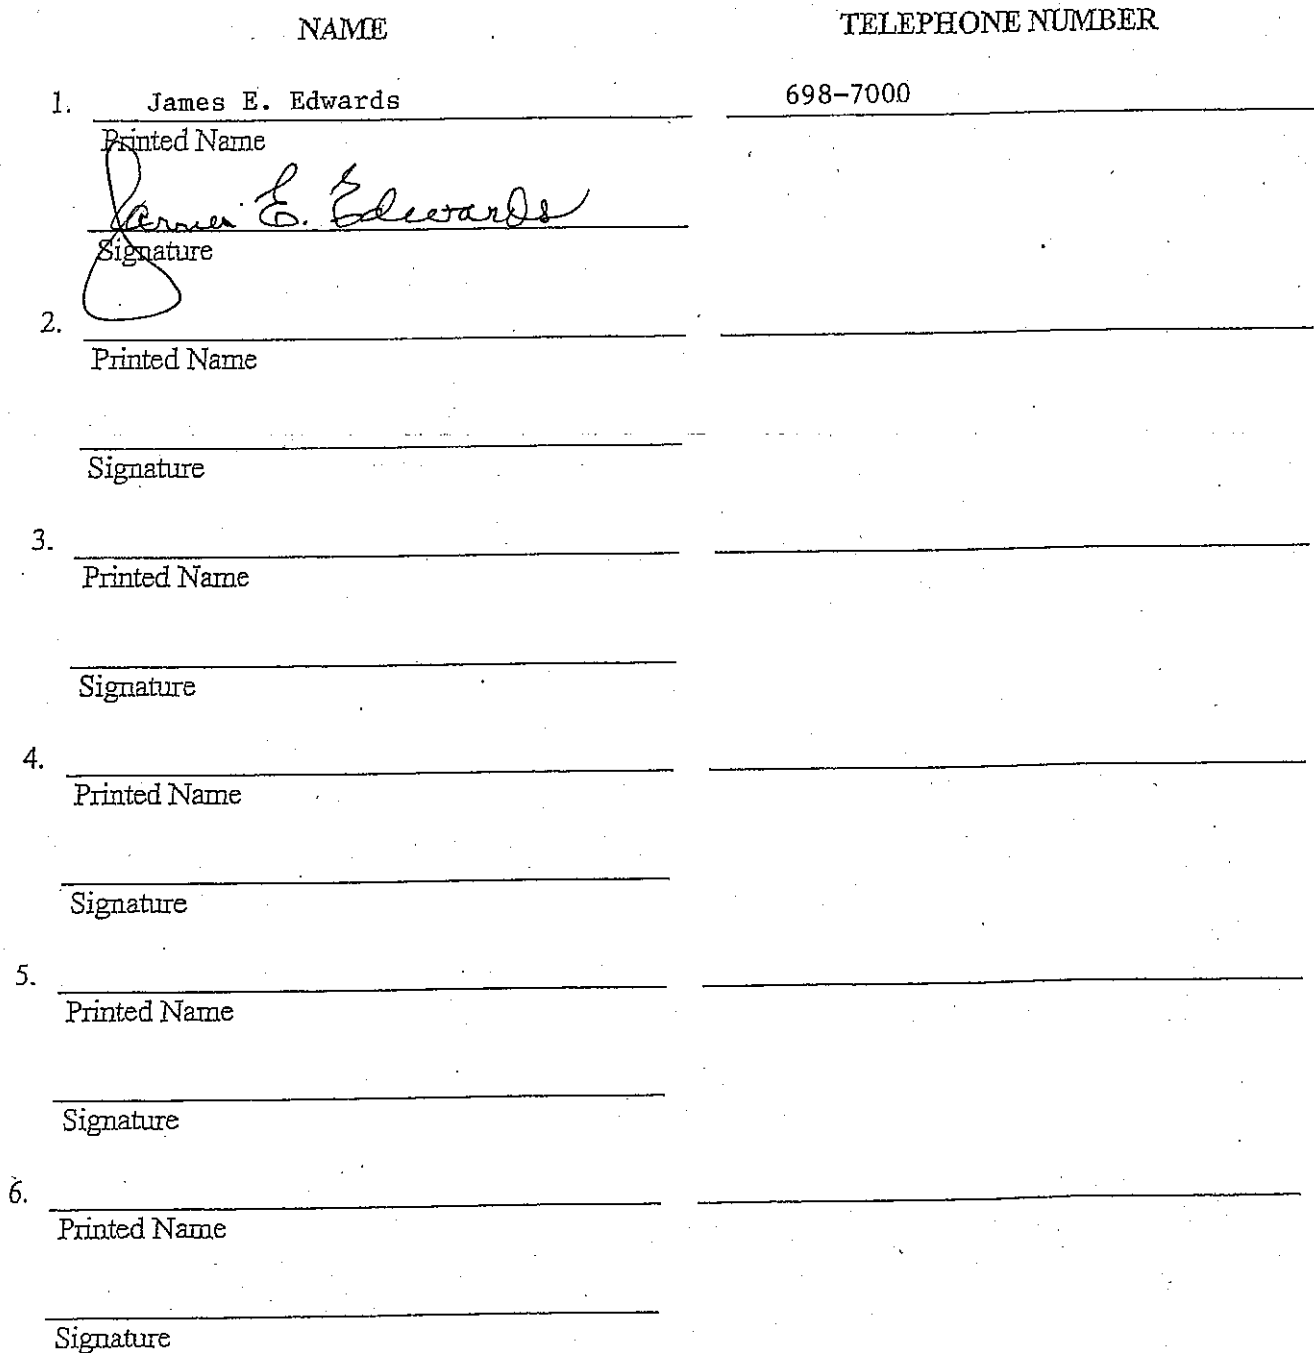 NAME TELEPHONE NUMBER
1. James E. Edwards 698-7000
Printed Name
James E. Edwards
Signature
2.
Printed Name
Signature
3.
Printed Name
Signature
4.
Printed Name
Signature
5.
Printed Name
Signature
6.
Printed Name
Signature